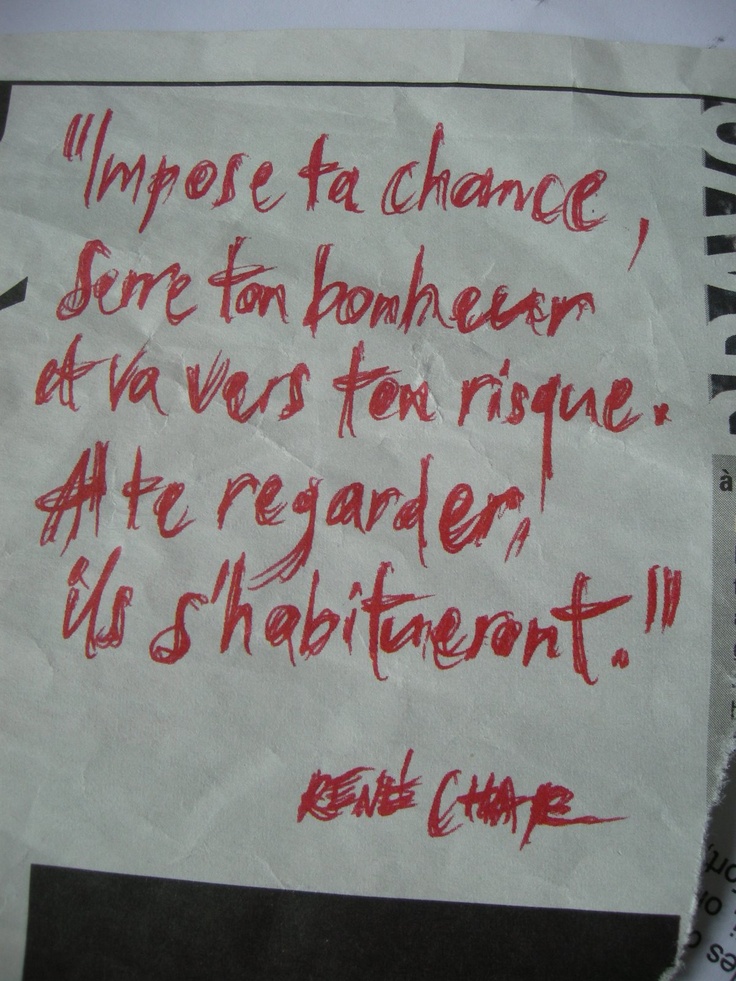 "Impose ta chance,
Serre ton bonheur
et va vers ton risque.
A te regarder,
ils s'habitueront."
RENÉ CHAR
à